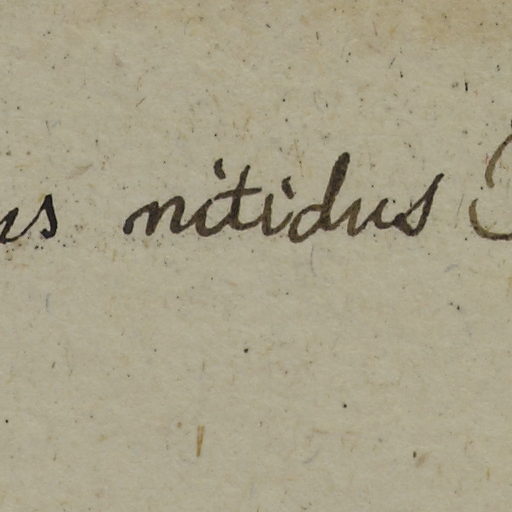 us nitidus